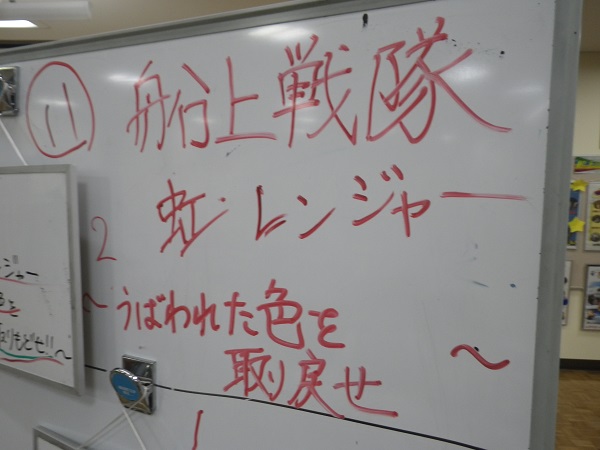 ⑪ 船上戦隊
虹・レンジャー
2
～うばわれた色を
取り戻せ～
ジャー
を
りもどせ!!～